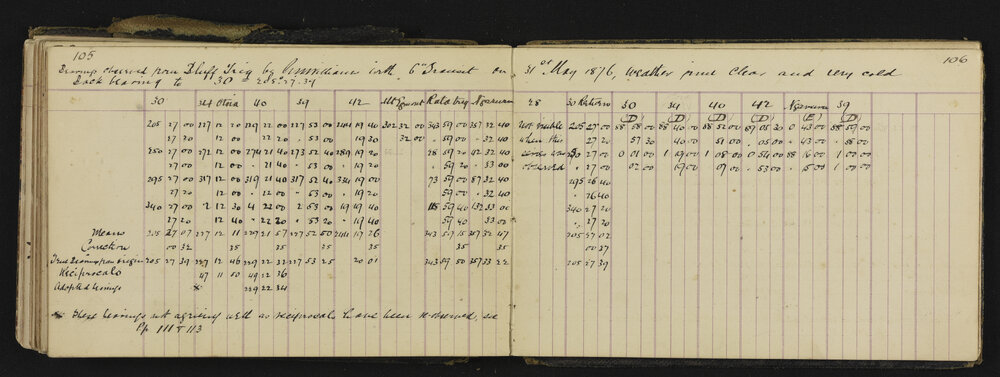 105
106
Bearings observed from Bluff Trig by Cunningham with 6 in Transit on 31st of May 1876, Weather fine clear and very cold
Back bearing to 30 = 205° 27' 39
30 34 Otoia 40 39 42 Mt Egmont Kald trig Ngamuru 28 30 Return 30 34 40 42 Ngamuru 39
(D) (D) (D) (D) (E) (D)
205 27 00 227 12 20 229 22 00 227 53 00 244 19 40 302 32 00 343 59 00 357 32 40 Not visible 205 27 00 88 58 00 88 40 00 88 52 00 89 05 20 0 43 00 88 59 00
27 20 12 00 22 00 53 00 19 30 32 00 59 00 32 40 when this 27 20 57 30 40 00 51 00 05 00 43 00 58 00
250 27 00 272 12 00 274 21 40 273 52 40 289 19 20 28 59 20 42 32 40 27 00 0 01 00 1 19 00 1 08 00 0 54 00 88 16 00 1 00 00
27 00 12 00 21 40 53 00 19 20 59 20 33 00 observed 27 00 02 00 19 00 09 00 53 00 15 00 1 00 00
295 27 00 317 12 00 319 21 40 317 52 40 334 19 00 73 59 00 87 32 40 295 26 40
27 20 12 00 22 00 53 00 19 20 59 00 32 40 26 40
340 27 00 2 12 30 4 22 00 2 53 00 19 19 40 118 59 40 132 33 00 340 27 20
27 20 12 40 22 20 53 20 19 40 59 40 33 00 27 20
Means 205 27 07 227 12 11 229 21 57 227 52 50 244 19 26 343 59 15 357 32 47 205 27 02
Correction 00 32 35 35 35 35 35 00 37
True Bearing from origin 205 27 39 227 12 46 229 22 32 227 53 25 20 01 343 59 50 357 33 22 205 27 39
Reciprocals 47 11 50 49 22 36
Adopted bearings * 229 22 34
* These bearings not agreeing well as reciprocals have been reobserved, see
Pp 111 & 113